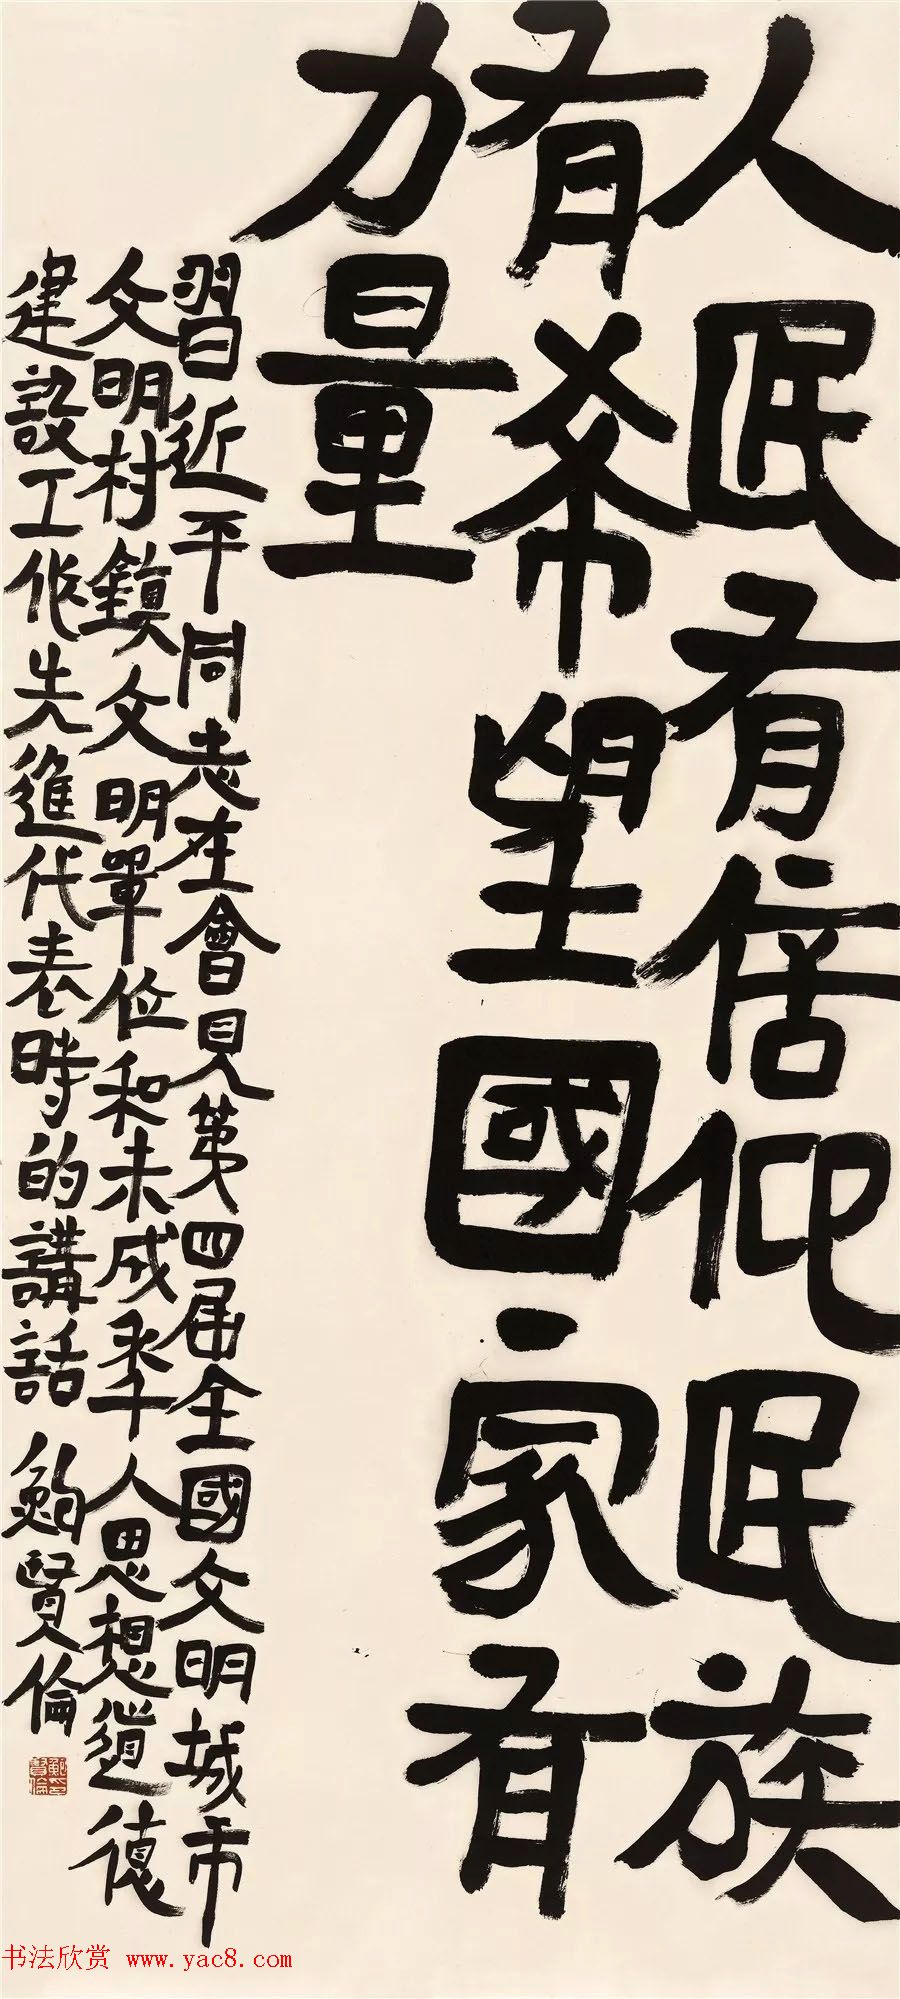 人民有信仰民族
有希望國家有
力量
習近平同志在會見第四届全國文明城市
文明村鎮文明單位和未成年人思想道德
建設工作先進代表時的講話 鮑賢倫
書法欣赏 www.yac8.com